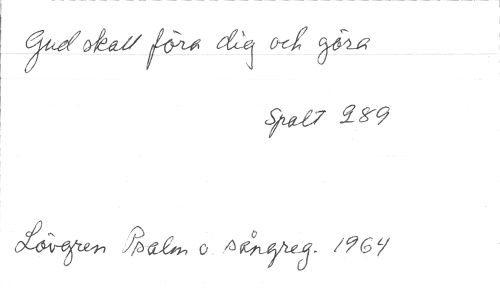 Gud skall föra dig och göra
Spalt 289
Lövgren Psalm o. sångreg. 1964